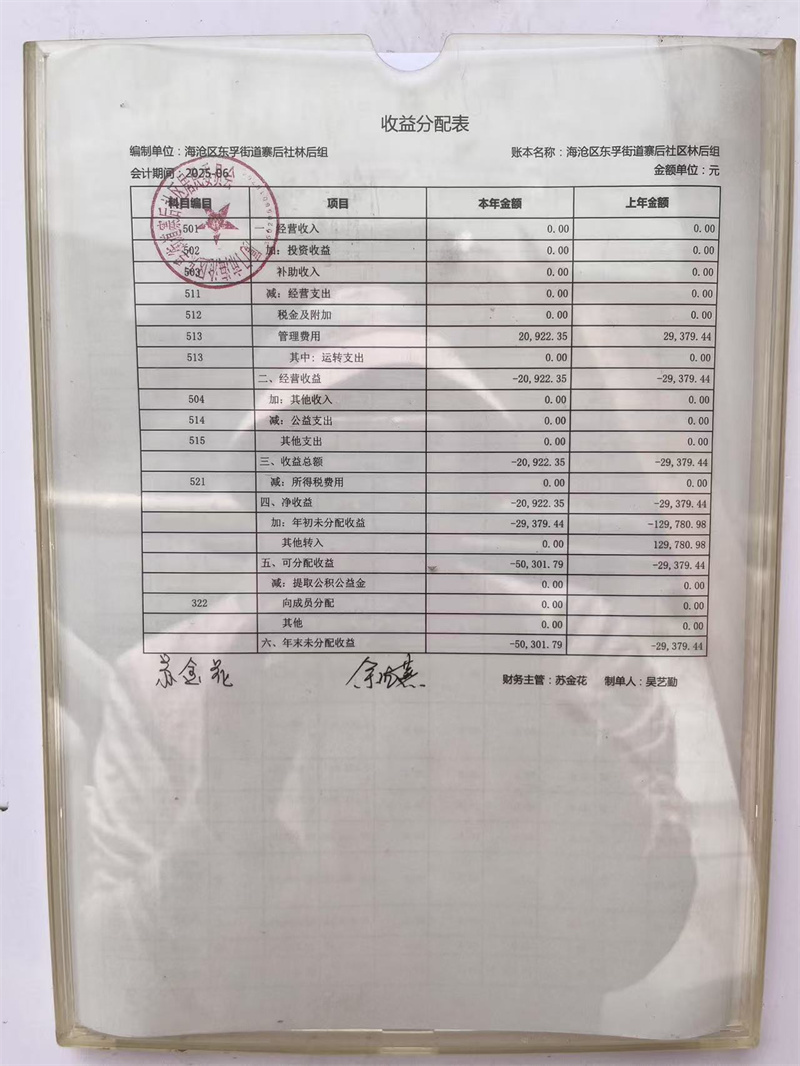 收益分配表
编制单位：海沧区东孚街道寨后社林后组 账本名称：海沧区东孚街道寨后社区林后组
会计期间：2025-06 金额单位：元
科目编目 项目 本年金额 上年金额
501 一、经营收入 0.00 0.00
502 加：投资收益 0.00 0.00
503 补助收入 0.00 0.00
511 减：经营支出 0.00 0.00
512 税金及附加 0.00 0.00
513 管理费用 20,922.35 29,379.44
513 其中：运转支出 0.00 0.00
二、经营收益 -20,922.35 -29,379.44
504 加：其他收入 0.00 0.00
514 减：公益支出 0.00 0.00
515 其他支出 0.00 0.00
三、收益总额 -20,922.35 -29,379.44
521 减：所得税费用 0.00 0.00
四、净收益 -20,922.35 -29,379.44
加：年初未分配收益 -29,379.44 -129,780.98
其他转入 0.00 129,780.98
五、可分配收益 -50,301.79 -29,379.44
减：提取公积公益金 0.00 0.00
322 向成员分配 0.00 0.00
其他 0.00 0.00
六、年末未分配收益 -50,301.79 -29,379.44
苏金花
财务主管：苏金花 制单人：吴艺勤